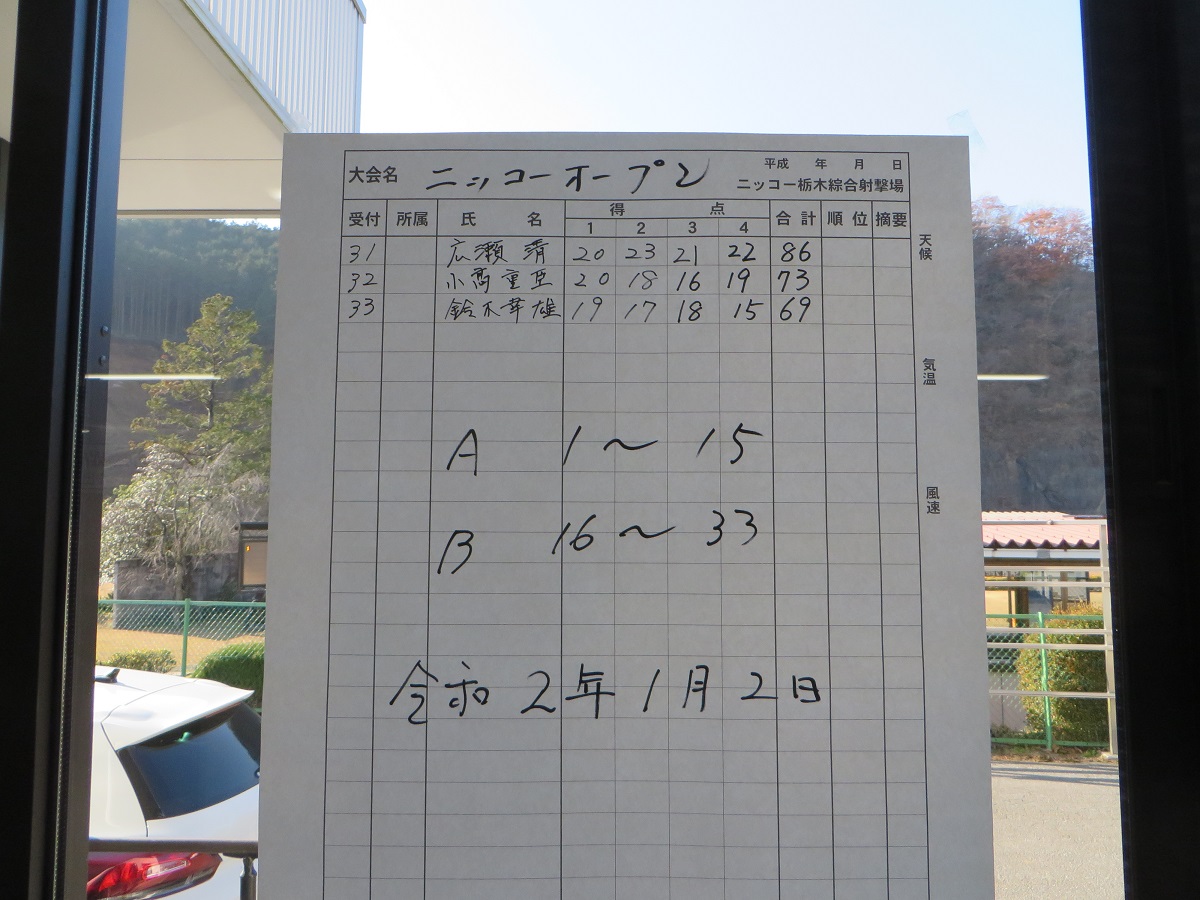 大会名 ニッコーオープン 平成 年 月 日
ニッコー栃木綜合射撃場
受付 所属 氏 名 得 点 合計 順位 摘要
1 2 3 4
31 広瀬 清 20 23 21 22 86
32 小高重亜 20 18 16 19 73
33 鈴木幸雄 19 17 18 15 69
A 1〜15
B 16〜33
令和2年1月2日
天候
気温
風速